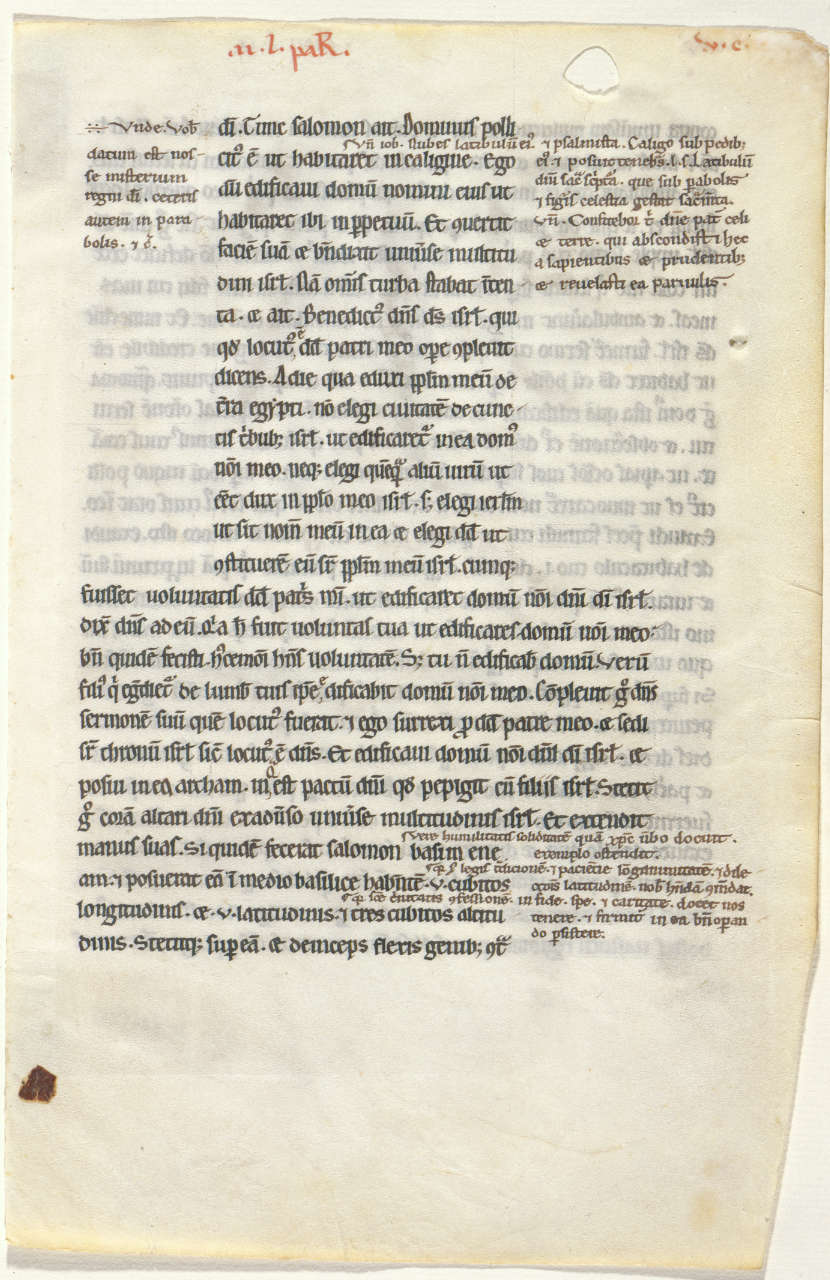 .II. l. paR.
v. c.
Vnde. Vob̄
datum est nos-
se misterium
regni d̄i. ceteris
autem in para
bolis. ⁊ c̄.
d̄i. Tunc salomon ait. Dominus polli
cit᷒ ē ut habitaret in caligine. Ego
aūt edificaui domū nomini eius ut
habitaret ibi in ꝑpetuū. Et uertit
faciē suā ⁊ bn̄dixit uniu̾se multitu
dini isrł. Nā om̄is turba stabat īten
ta. ⁊ ait. Benedict᷒ dn̄s d̄s isrł. qui
qđ locut᷒ ē dd̄ patri meo oꝑe ꝯpleuit
dicens. A die qua eduxi pp̄lm meū de
t̄ra egypti. nō elegi ciuitatē de cunc
tis t̄bub; isrł. ut edificaret᷒ in ea dom᷒
nōi meo. neq; elegi quēq̄ᵃ aliū uirū ut
eēt dux in pp̄lo meo isrł. s; elegi ierl̄m
ut sit nom̄ meū in ea ⁊ elegi dd̄ ut
ꝯstituerē eū sr̄ pp̄lm meū isrł. cumq;
fuisset uoluntatis dd̄ pat̾s m̄i. ut edificaret domū nōi dn̄i d̄i isrł.
dix̄ dn̄s ad eū. Qͥa h̄ fuit uoluntas tua ut edificares domū nōi meo.
bn̄ quidē fecisti. hͨcemōi hn̄s uoluntatē. S; tu n̄ edificab̄ domū. Verū
fili᷒ qͥ eḡdiet᷒ de lumb̄ tuis ip̄e edificabit domū nōi meo. Cōpleuit g̊ dn̄s
sermonē suū quē locut᷒ fuerat. ⁊ ego surrexi ꝓ dd̄ patre meo. ⁊ sedi
sr̄ thronū isrł sic̄ locut᷒ ē dn̄s. Et edificaui domū nōi dn̄i d̄i isrł. ⁊
posui in ea archam. in qͣ est pactū dn̄i qđ pepigit cū filiis isrł. Stetit
g̊ corā altari dn̄i exadu̾so uniu̾se multitudinis isrł. Et extendit
manus suas. Siquidē fecerat salomon basim ene
am. ⁊ posuerat eā ī medio basilice habn̄tē .v. cubitos
longitudinis. ⁊ .v. latitudinis. ⁊ tres cubitos altitu
dinis. Stetitq; suꝑ eā. ⁊ deinceps flexis genib; ꝯt̄ᵃ
Vn̄ iob. Nubes latibulū ei᷒. ⁊ psalmista. Caligo sub pedib;
ei᷒. ⁊ posuit teneb̾s. l. s. l. Latibulū
dn̄i sac̄ sc̾pta. que sub ꝑabolis
⁊ figͥs celestia gestat sac̄m̄ta.
Vn̄. Confitebor t̄ dn̄e pat̾ celi
⁊ terre. qui abscondisti hec
a sapientibus ⁊ prudentib;
⁊ reuelasti ea paruulis.
Vere humilitatis soliditatē quā xp̄c ūbo docuit.
exemplo ostendit.
longanimitatē. ⁊ dile
ctōis latitudinē. nob̄ hn̄dā ꝯm̄dat.
in fide. spe. ⁊ caritate. docet nos
tenere. ⁊ firmit̾ in ea bn̄ oꝑan
do ꝑsistere.